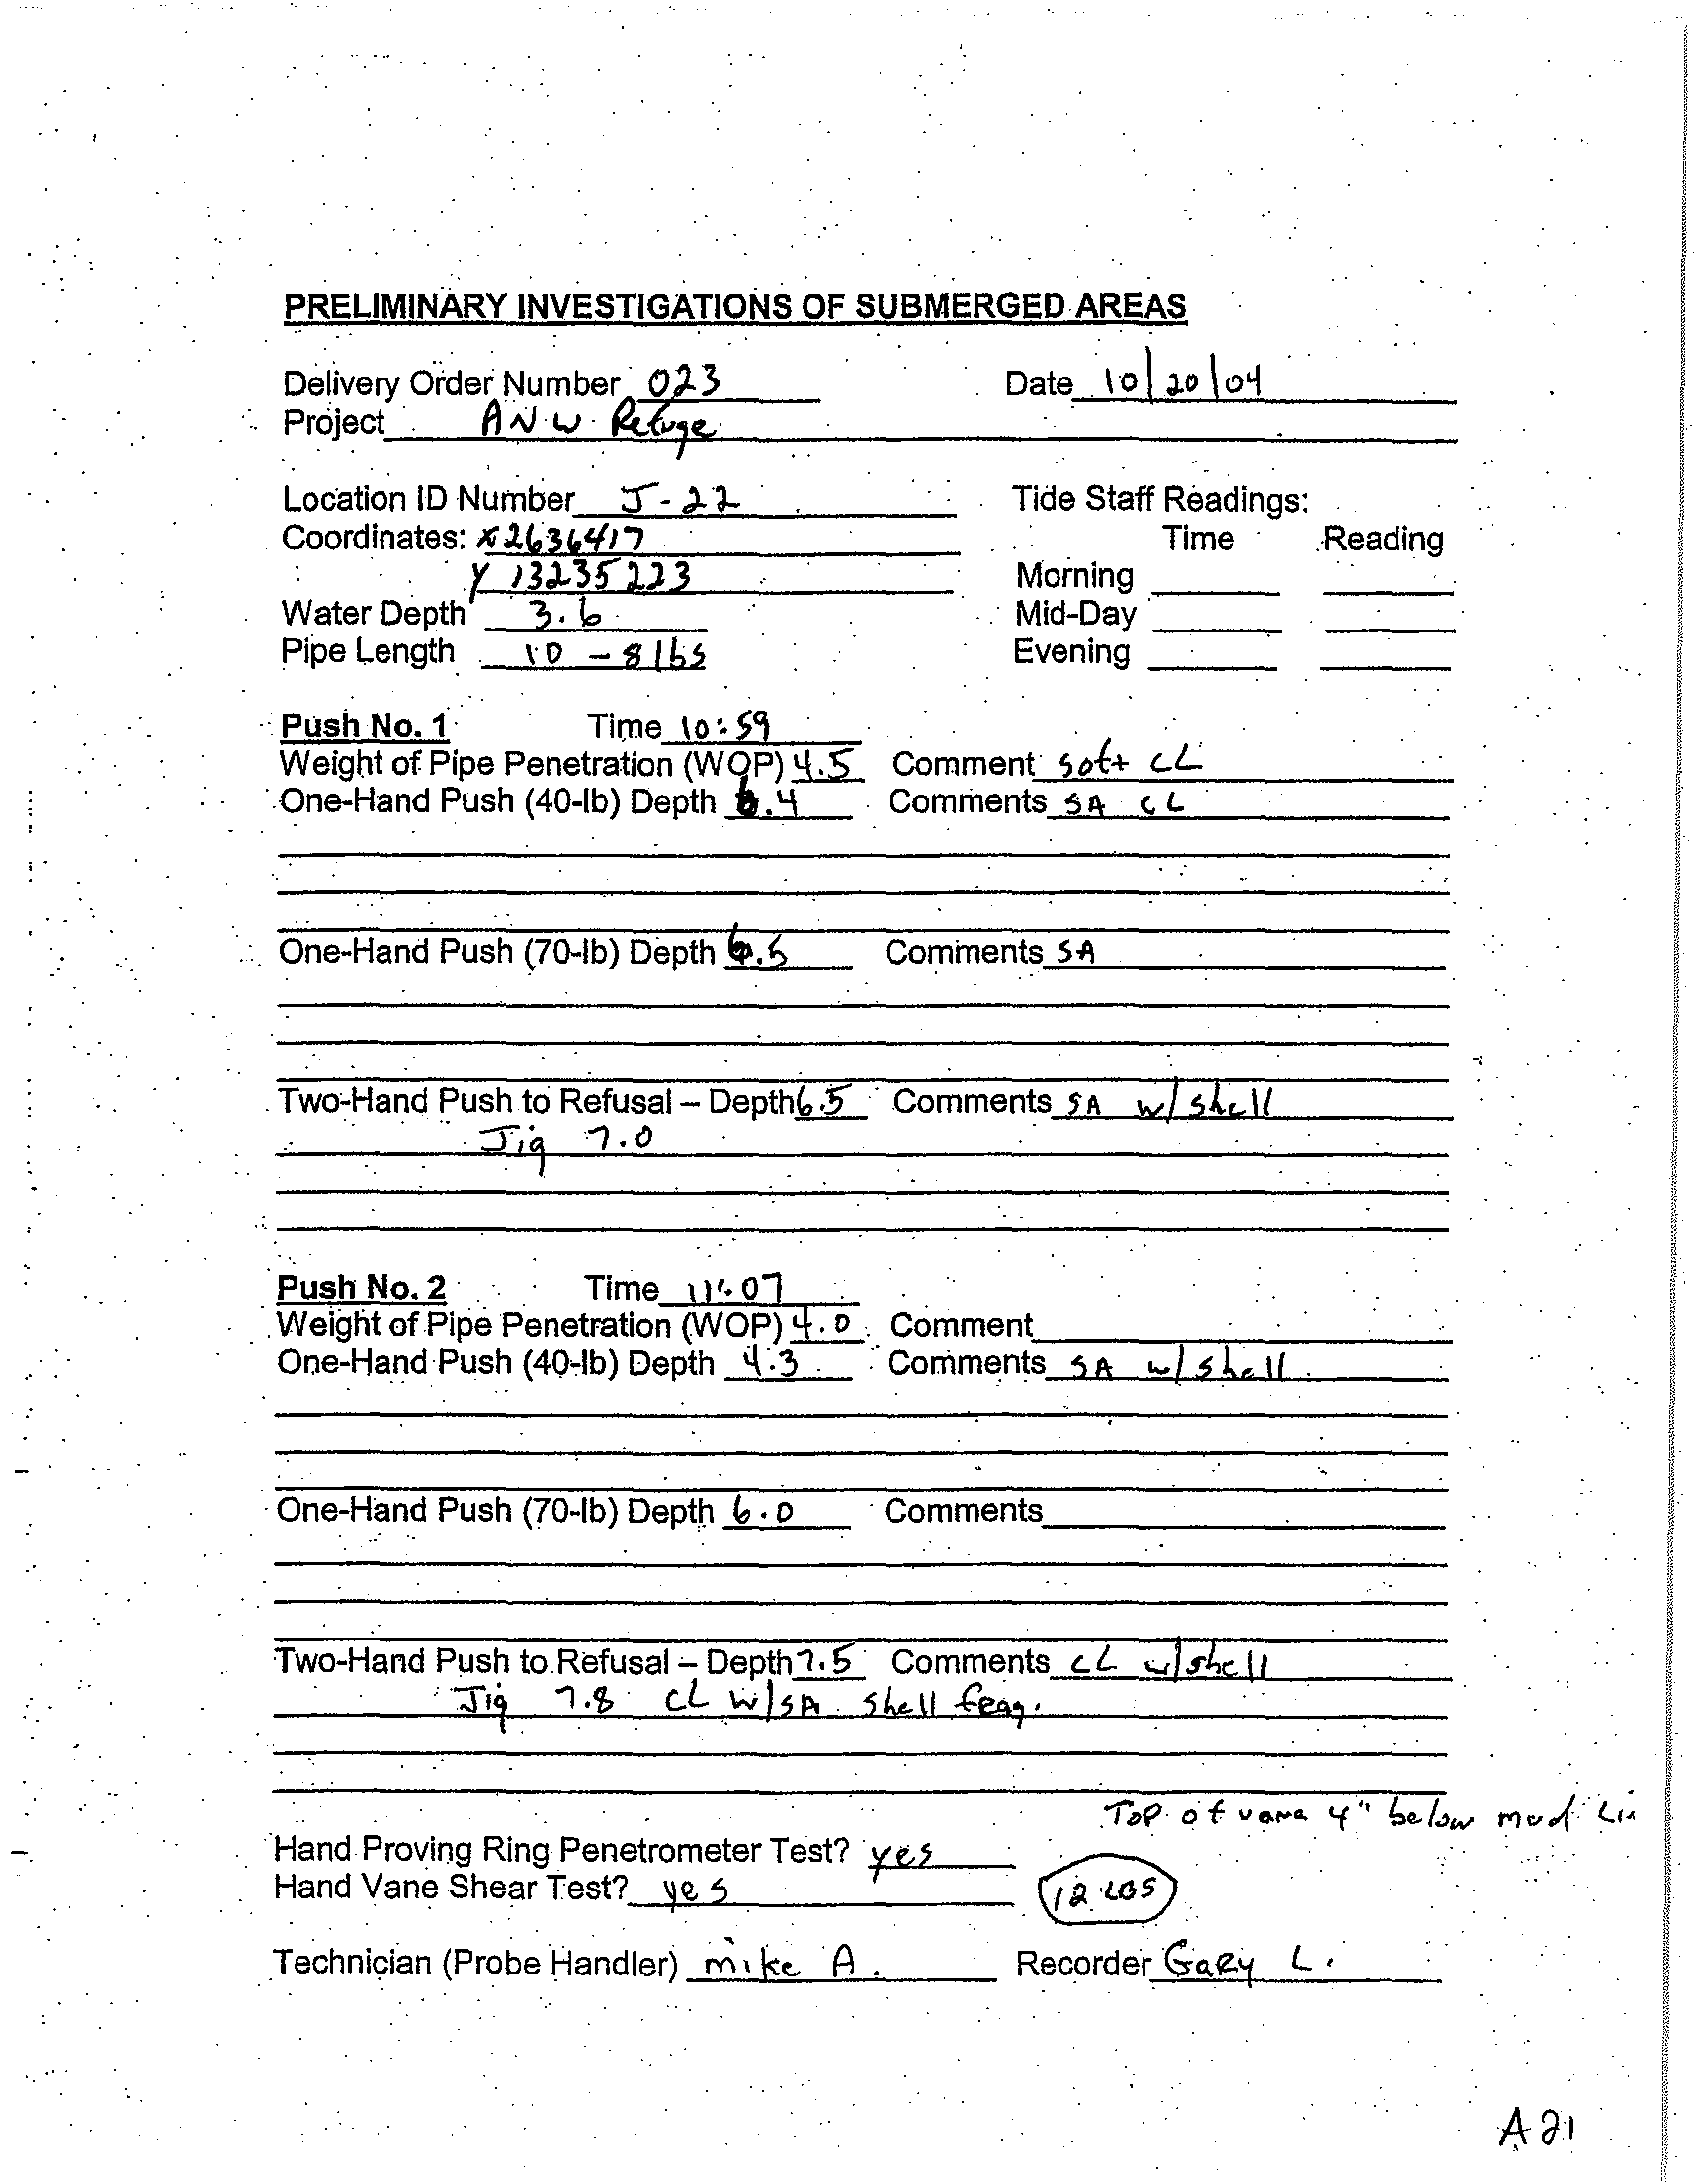 PRELIMINARY INVESTIGATIONS OF SUBMERGED AREAS
Delivery Order Number 023 Date 10/20/04
Project ANW Refuge
Location ID Number J-22 Tide Staff Readings:
Coordinates: X 2636417 Time Reading
Y 13235223 Morning
Water Depth 3.6 Mid-Day
Pipe Length 10 - 8 lbs Evening
Push No. 1 Time 10:59
Weight of Pipe Penetration (WOP) 4.5 Comment soft CL
One-Hand Push (40-lb) Depth 6.4 Comments SA CL
One-Hand Push (70-lb) Depth 6.5 Comments SA
Two-Hand Push to Refusal – Depth 6.5 Comments SA w/ shell
Jig 7.0
Push No. 2 Time 11:07
Weight of Pipe Penetration (WOP) 4.0 Comment
One-Hand Push (40-lb) Depth 4.3 Comments SA w/ shell
One-Hand Push (70-lb) Depth 6.0 Comments
Two-Hand Push to Refusal – Depth 7.5 Comments CL w/ shell
Jig 7.8 CL w/ SA shell frag.
Top of vane 4" below mud
Hand Proving Ring Penetrometer Test? yes
Hand Vane Shear Test? yes 12 LBS
Technician (Probe Handler) mike A. Recorder Gary L.
A21